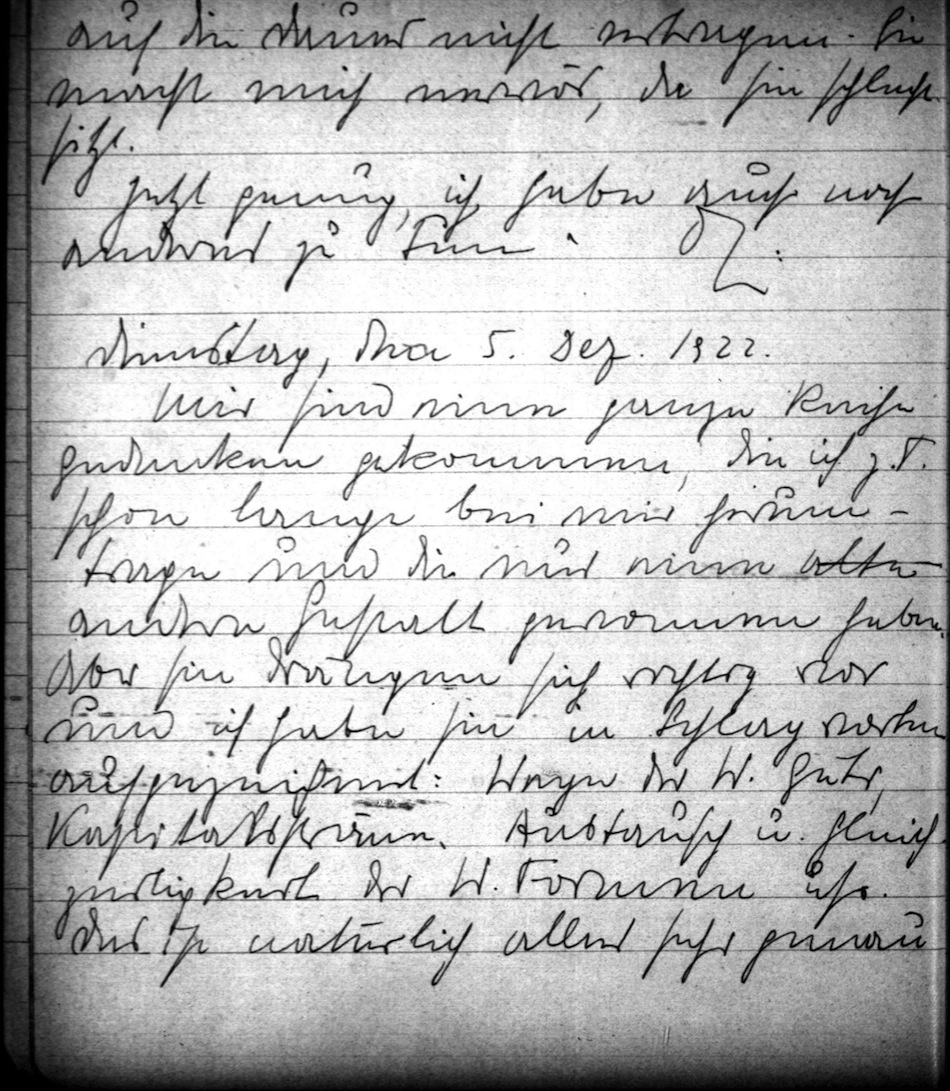 auf die Dauer nicht vertragen. Sie
macht mich nervös, da sie schlecht
sitzt.
Jetzt genug, ich habe auch noch
anderes zu tun.
Dienstag, den 5. Dez. 1922.
Mir sind eine ganze Reihe
Gedanken gekommen, die ich z.T.
schon lange bei mir herum-
trage und die nur eine alte
andere Gestalt gewonnen haben.
Aber sie drängen sich richtig vor
und ich habe sie in Schlagworten
aufgezeichnet: Wege der W. Güter,
Kapitalströme. Austausch u. Gleich-
zeitigkeit der W. Formen usw.
Das ist natürlich alles sehr genau